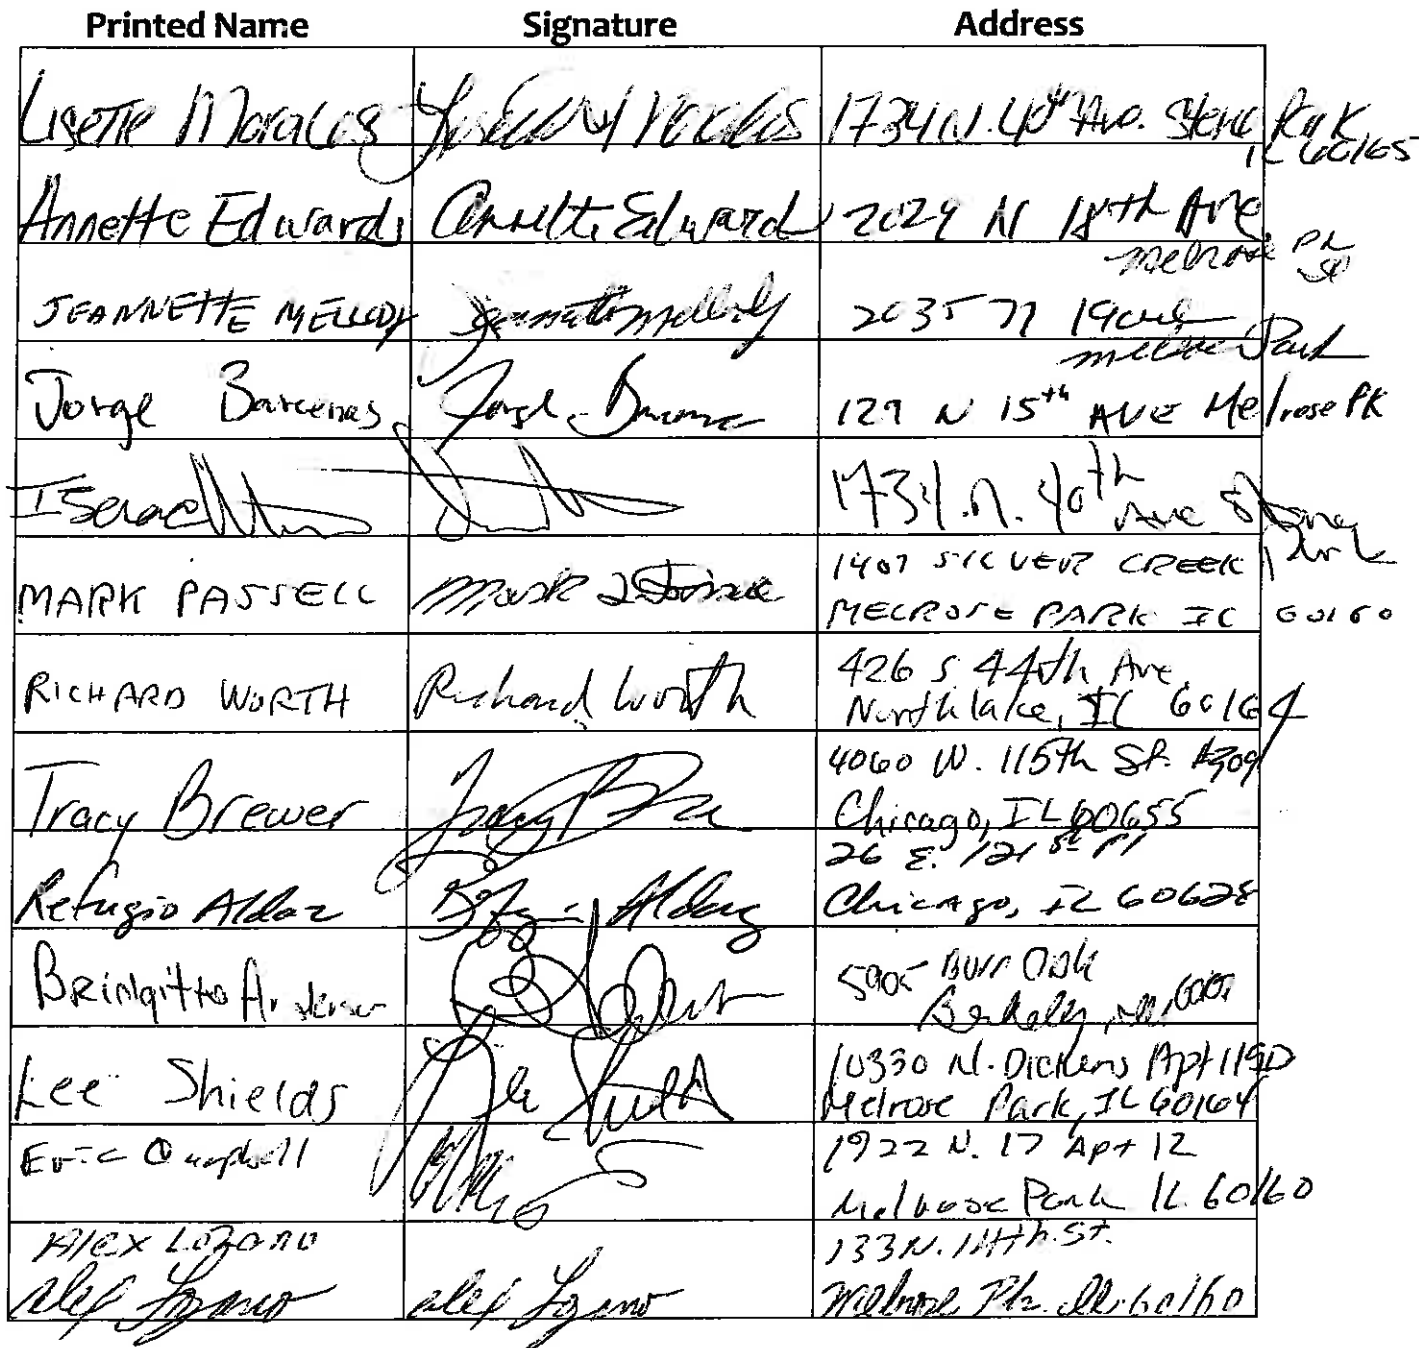 Printed Name Signature Address
Lisette Morales 1734 N. 40th Ave. Stone Park
IL 60165
Annette Edwards Annette Edward 2029 N 18th Ave
Melrose Pk
JEANNETTE MELLODY Jeannette Mellody 2035 N 19
Melrose Park
Jorge Barcenas 129 N 15th AVE Melrose PK
1734 N. 40th
Ave Stone
Park
MARK PASSELL Mark 1407 SILVER CREEK
MELROSE PARK IL 60160
RICHARD WORTH Richard Worth 426 S 44th Ave.
Northlake, IL 60164
Tracy Brewer 4060 W. 115th St. #309
Chicago, IL 60655
Refugio Aldaz Aldaz 26 E. 121st Pl
Chicago, IL 60628
5905 Burr Oak
Berkeley
Lee Shields 10330 N. Dickens Apt 119D
Melrose Park, IL 60164
Eric Campbell 1922 N. 17 Apt 12
Melrose Park IL 60160
Alex Lozano 133 N. 14th. St.
Alex Lozano Alex Lozano Melrose Pk. Ill. 60160